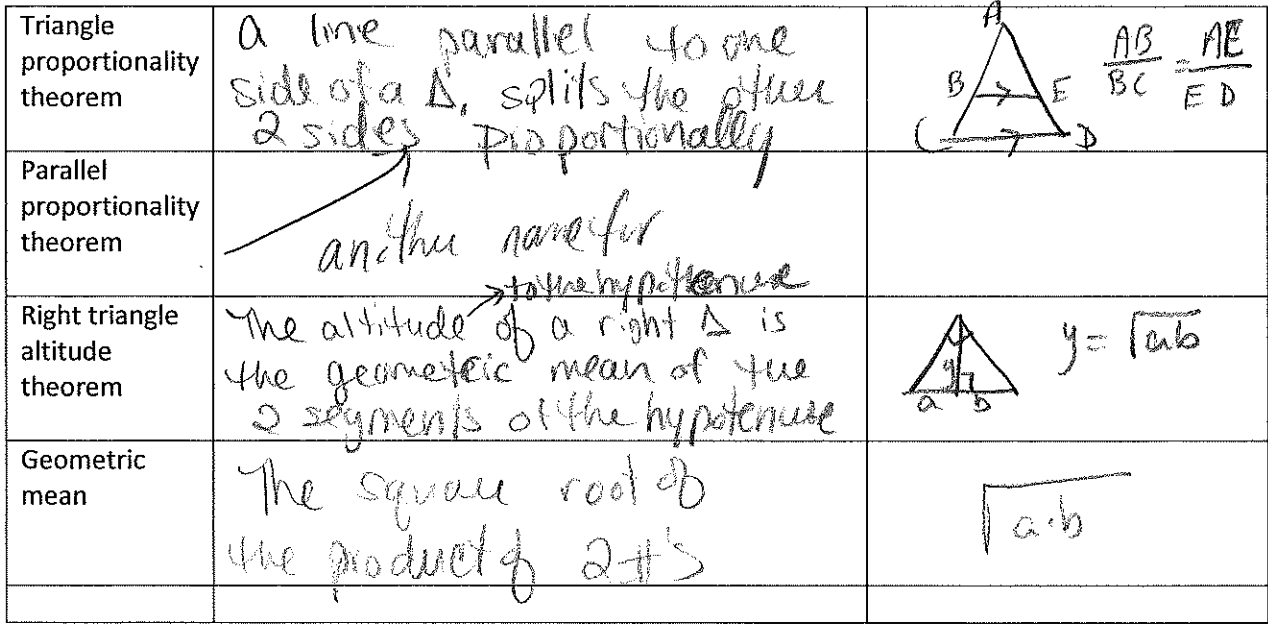 Triangle
proportionality
theorem
a line parallel to one
side of a Δ, splits the other
2 sides proportionally
A
B E
C D
AB/BC = AE/ED
Parallel
proportionality
theorem
another name for
Right triangle
altitude
theorem
to the hypotenuse
The altitude of a right Δ is
the geometric mean of the
2 segments of the hypotenuse
y
a b
y = √ab
Geometric
mean
The square root of
the product of 2 #'s
√a·b